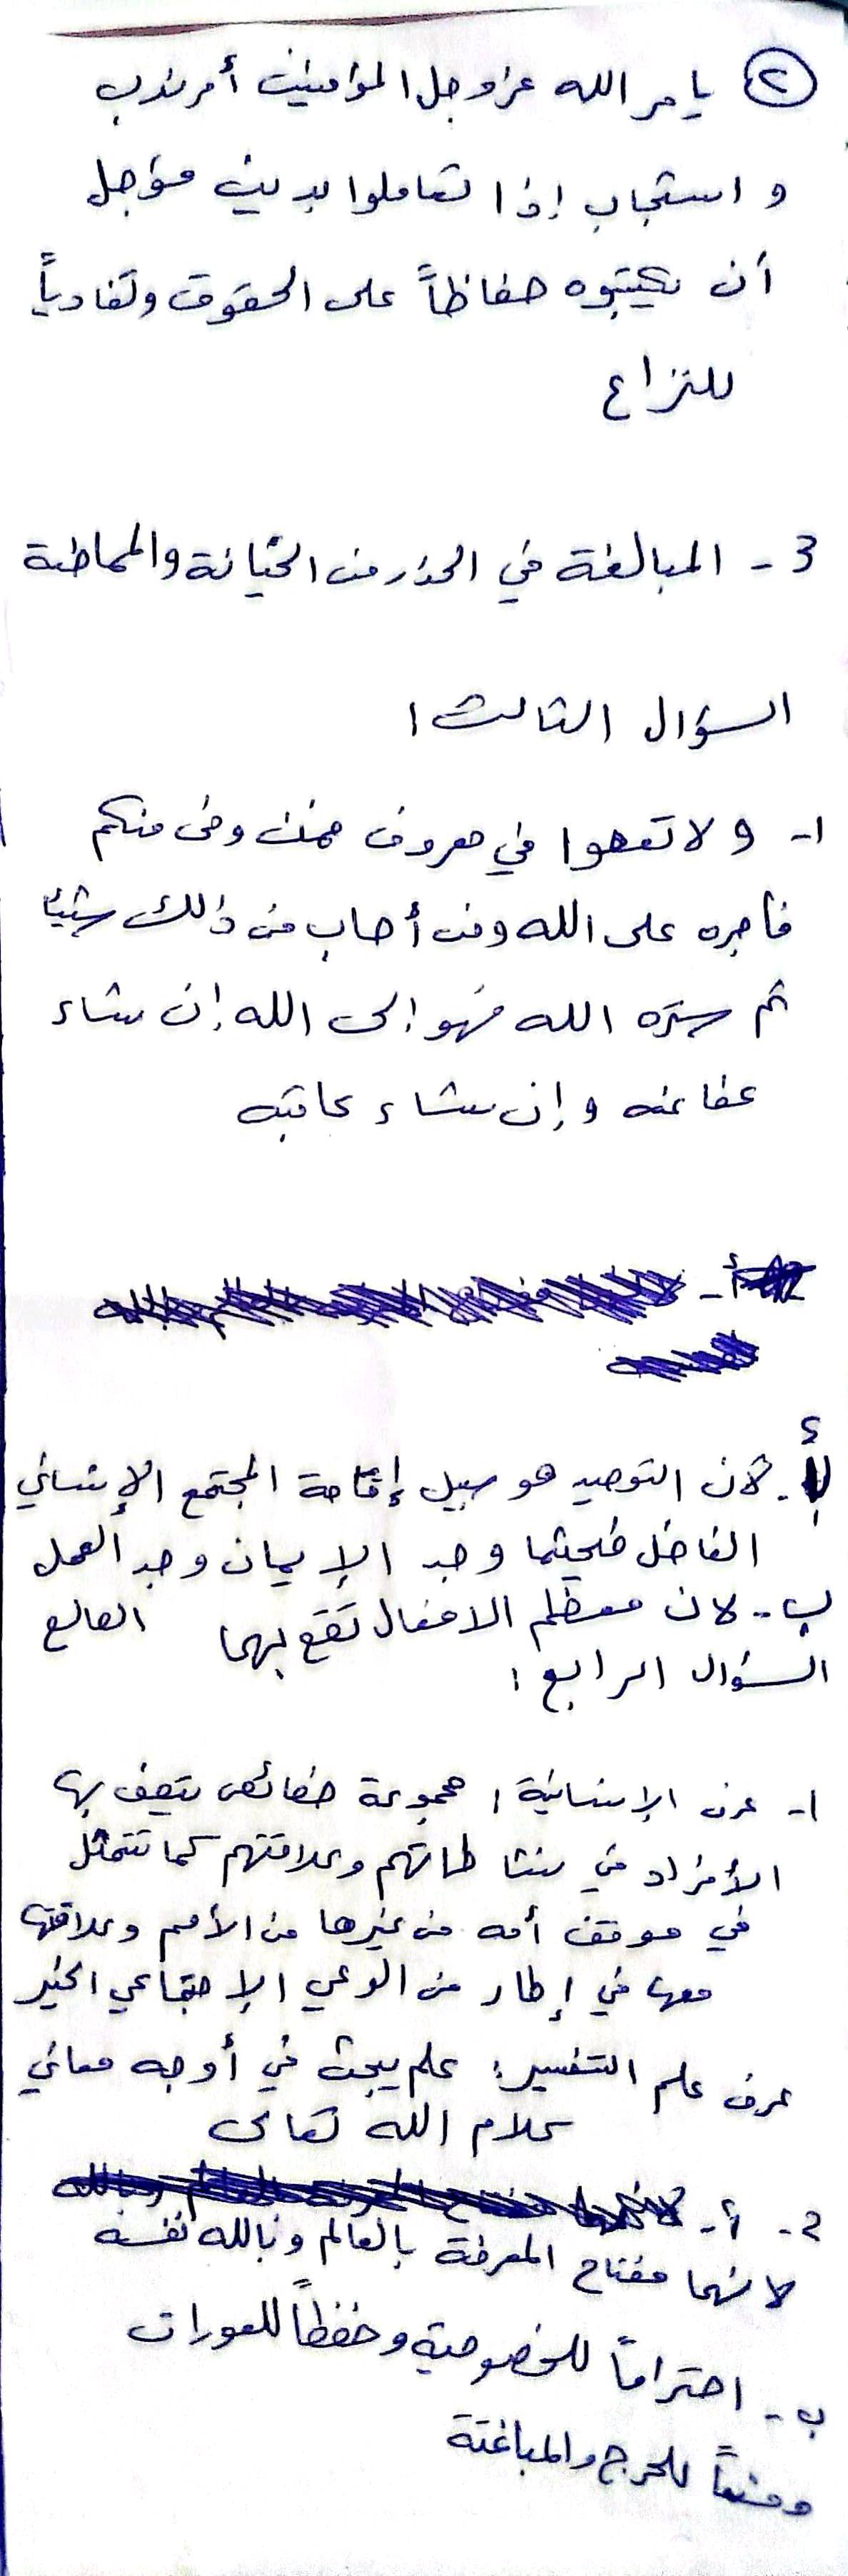 ٢ يامر الله عزوجل المؤمنين أمر ندب
و استحباب إذا تعاملوا بدين مؤجل
أن يكتبوه حفاظاً على الحقوق وتفادياً
للنزاع
3 - المبالغة في الحذر من الخيانة والمماطلة
السؤال الثالث :
1- ولا تعصوا في معروف فمن وفى منكم
فأجره على الله ومن أصاب من ذلك شيئاً
ثم ستره الله فهو إلى الله إن شاء
عفا عنه وإن شاء عاقبه
أ-
أ. لأن التوحيد هو سبيل إقامة المجتمع الإنساني
الفاضل فحيثما وجد الإيمان وجد العمل
الصالح
ب - لان معظم الافعال تقع بهما
السؤال الرابع :
1- عرف الإنسانية : مجموعة خصائص يتصف بها
الأفراد في نشاطاتهم وعلاقتهم كما تتمثل
في موقف أمه من غيرها من الأمم وعلاقتها
معها في إطار من الوعي الإجتماعي الخير
عرف علم التفسير : علم يبحث في أوجه معاني
كلام الله تعالى
2- أ-
لانهما مفتاح المعرفة بالعالم وبالله نفسه
ب - احتراماً للخصوصية وحفظاً للعورات
ومنعاً للحرج والمباغتة